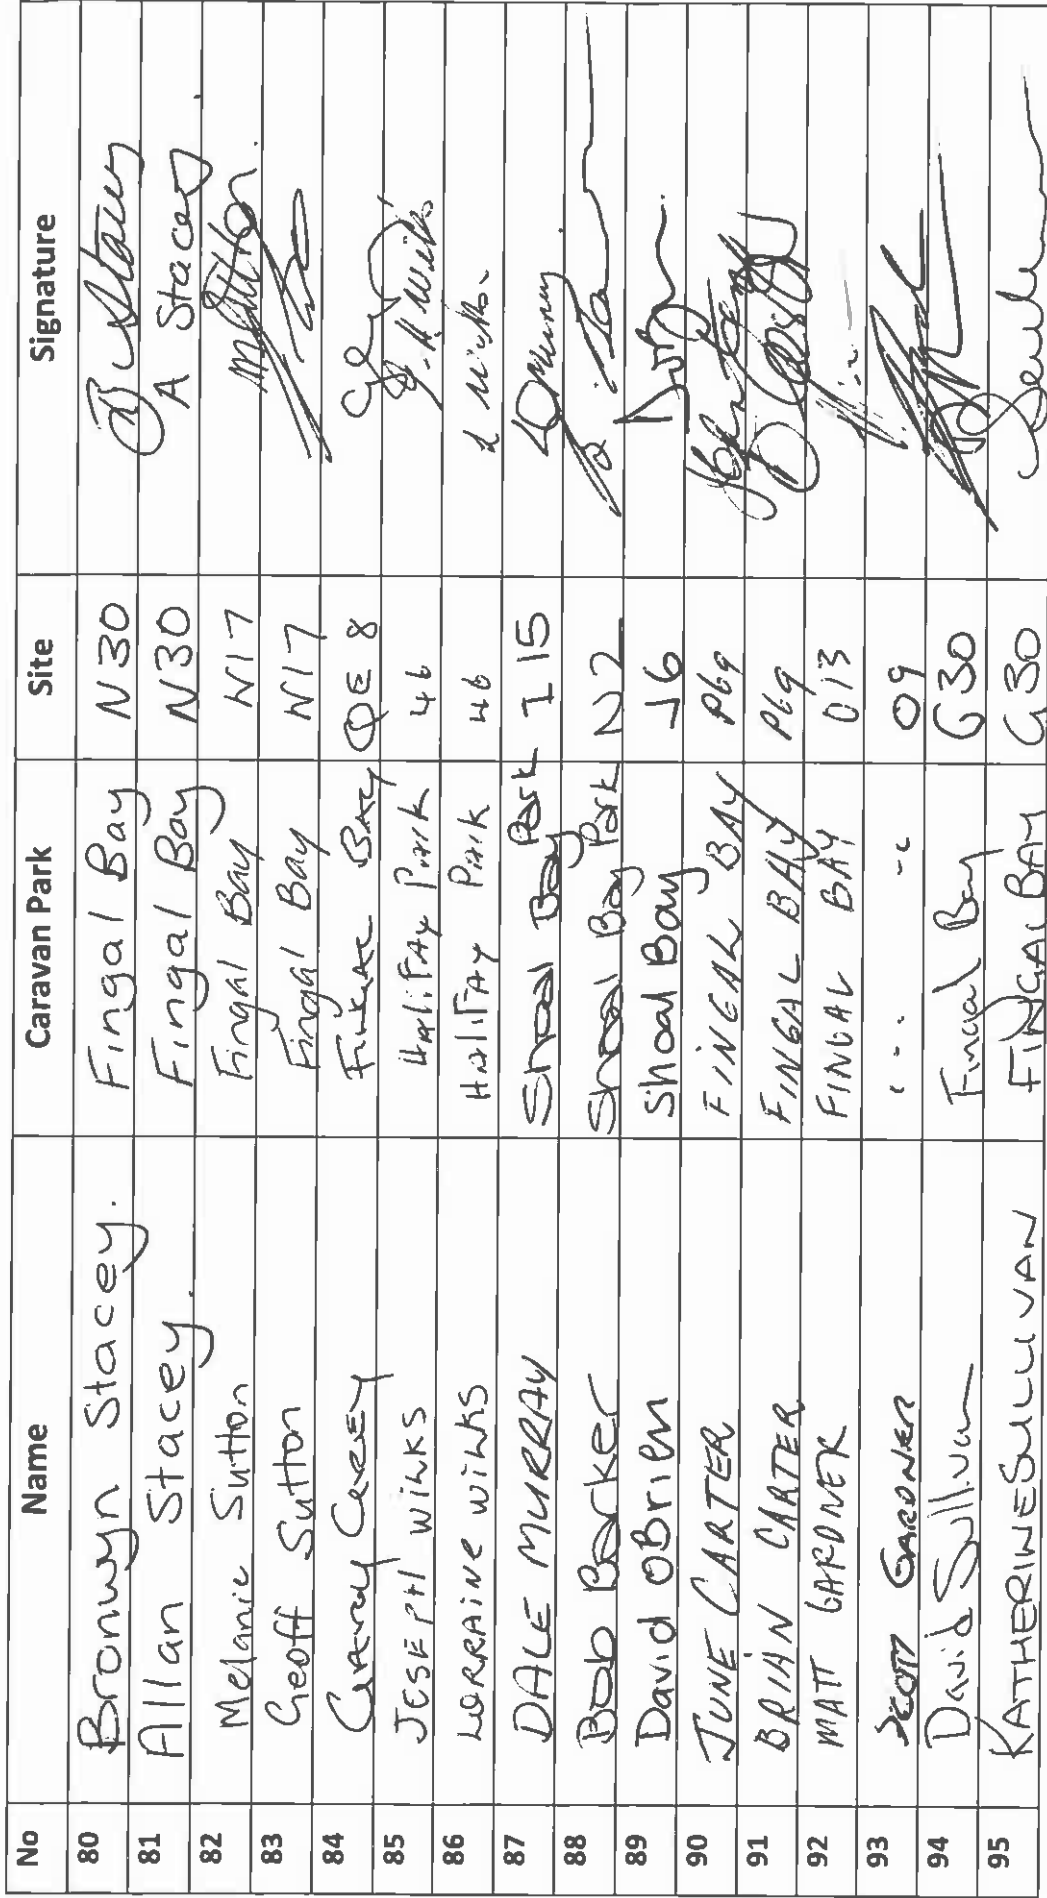 No Name Caravan Park Site Signature
80 Bronwyn Stacey. Fingal Bay N30
81 Allan Stacey. Fingal Bay N30 A Stacey
82 Melanie Sutton Fingal Bay W17
83 Geoff Sutton Fingal Bay W17
84 Garry Carey Bay OE 8
85 JOSEPH WILKS HaliFAy Park 46
86 LORRAINE WILKS HaliFAy Park 46 L Wilks
87 DALE MURRAY Shoal Bay Park I 15 DMurray
88 Bob Barker Shoal Bay Park N2
89 David OBrien Shoal Bay J6
90 JUNE CARTER FINGAL BAY P69
91 BRIAN CARTER FINGAL BAY P69
92 MATT GARDNER FINGAL BAY O13
93 SCOTT GARDNER O9
94 David Sullivan Fingal Bay G30
95 KATHERINE SULLIVAN FINGAL BAY G30